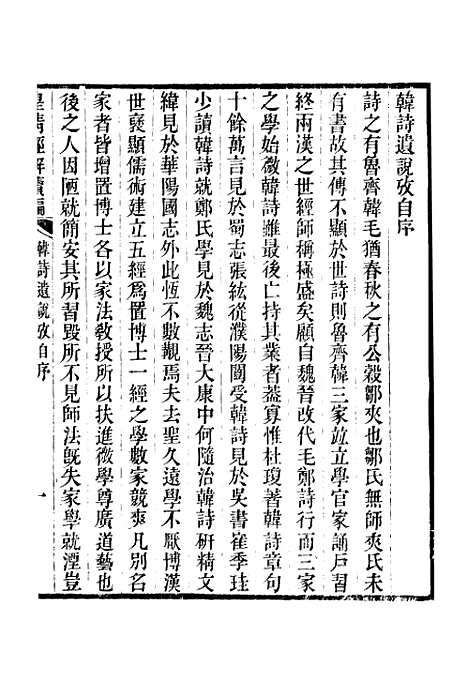 韓詩遺說攷自序
詩之有魯齊韓毛猶春秋之有公穀鄒夾也鄒氏無師夾氏未
有書故其傳不顯於世詩則魯齊韓三家竝立學官家誦戶習
終兩漢之世經師稱極盛矣顧自魏晉改代毛鄭詩行而三家
之學始微韓詩雖最後亡持其業者葢寡惟杜瓊著韓詩章句
十餘萬言見於蜀志張紘從濮陽闓受韓詩見於吳書崔季珪
少讀韓詩就鄭氏學見於魏志晉大康中何隨治韓詩硏精文
緯見於華陽國志外此恆不數觀焉夫去聖久遠學不厭博漢
世褒顯儒術建立五經爲置博士一經之學數家競爽凡別名
家者皆增置博士各以家法敎授所以扶進微學尊廣道藝也
後之人因陋就簡安其所習毀所不見師法旣失家學就湮豈
皇淸經解續編
韓詩遺說攷自序
一